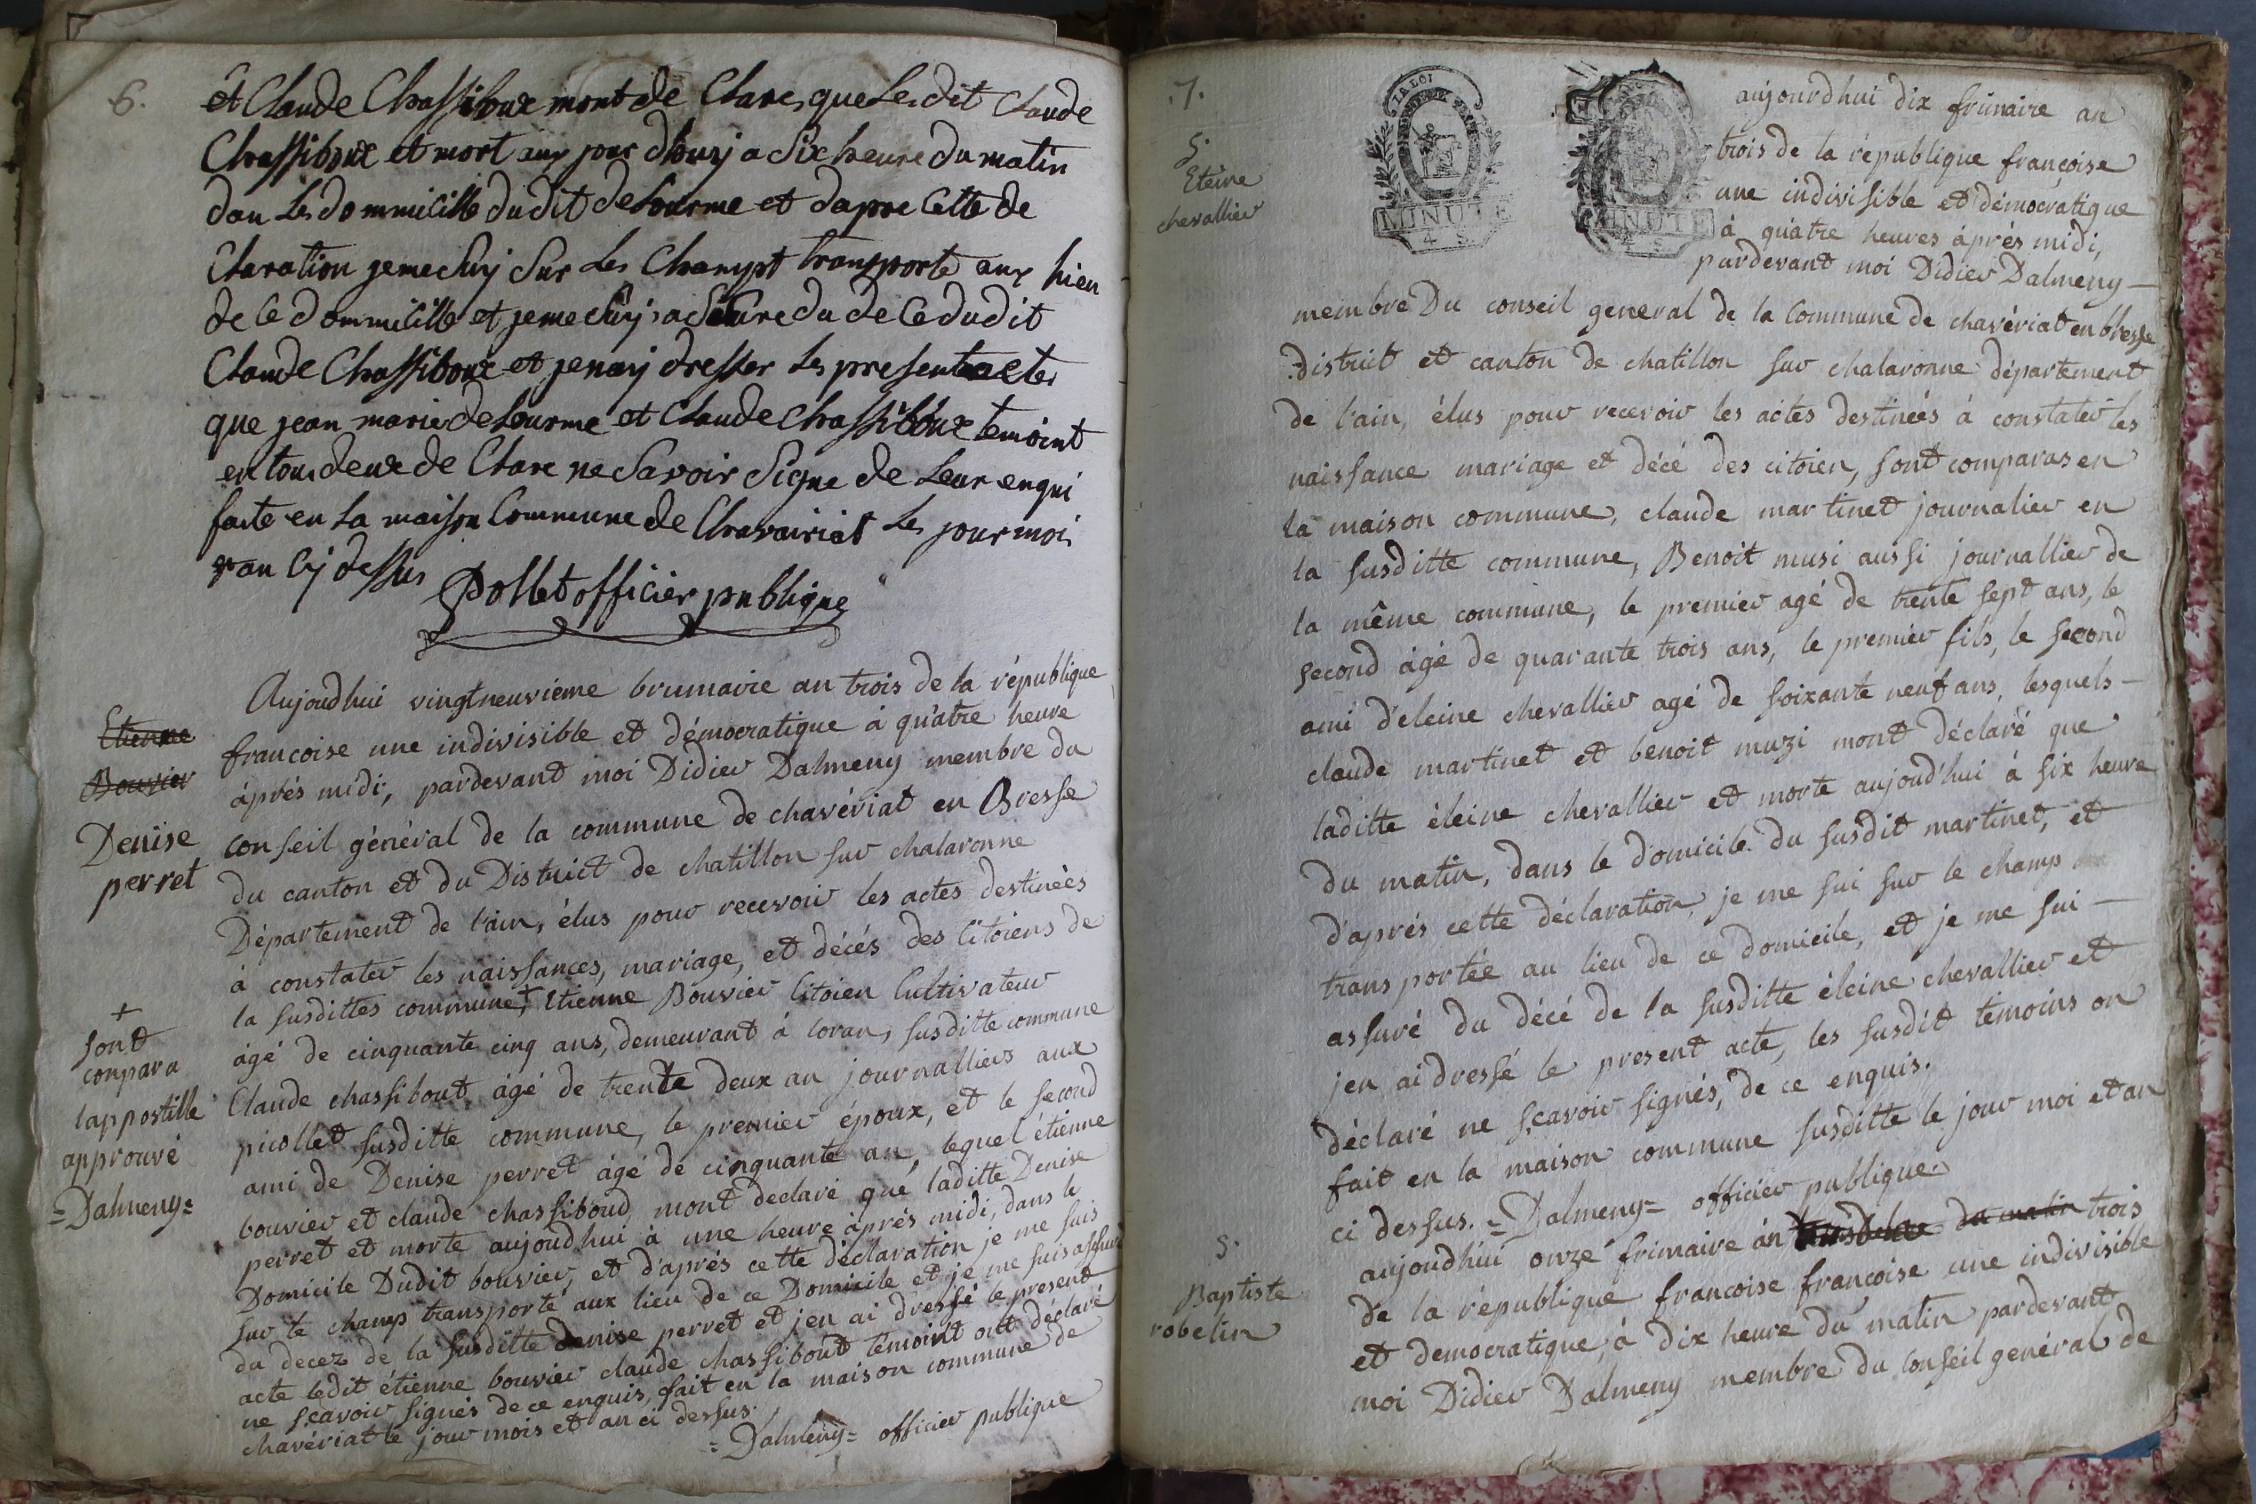 6.
et Claude Chassiboux mont de Clare que Le dit Claude
Chassiboux et mort aux jour dhuy a Six heure du matin
dan Le dommicille dudit deLourme et dapre Cette de
Claration jemeSuy Sur Les Champt transporte aux lieu
de Ce dommicille et jemeSuy aSeure du deCe dudit
Claude Chassiboux et jenay dresser Le present acte
que jean marie deLourme et Claude Chassiboux temoint
en tous deux de Clare ne Savoir Signe de Leur enqui
faite en La maison Commune de Chavairiat Le jour moi
et an Cy dessus
Pollet officier publique
Etienne
Bouvier
Denise
perret
Aujoudhui vingtneuvieme brumaire an trois de la république
francoise une indivisible et démocratique à quatre heure
àprés midi, pardevant moi Didier Dalmeny membre du
conseil général de la commune de chavériat en Bresse
du canton et du District de chatillon sur chalaronne
Département de l'ain, élus pour recevoir les actes destinées
à constater les naissances, mariage, et décés des Citoiens de
la susdittes commune + Etienne Bouvier Citoien Cultivateur
àgé de cinquante cinq ans, demeurant à Coran, susditte commune
Claude chassibout àgé de trente deux an journalliers aux
picollet susditte commune, le premier époux, et le second
ami de Denise perret àgé de cinquante an, lequel étienne
bouvier et claude chassiboud mont declaré que laditte Denise
perret et morte aujoudhui à une heure àprés midi, dans le
Domicile Dudit bouvier, et d'aprés cette déclaration je me suis
sur le champ transporté aux lieu de ce Domicile et je me suis assuré
du decez de la susditte denise perret et jen ai dressé le present
acte ledit étienne bouvier claude chassibout témoint ont déclaré
ne scavoir signés de ce enquis, fait en la maison commune de
chavériat le jour mois et an ci dessus.
=Dalmeny= officier publique
+
sont
conpara
lappostille
approuvé
=Dalmeny=
.7.
5.
Eleine
chevallier
LA LOI
MINUTE
4 S
MINUTE
4 S
aujourdhui dix frimaire an
trois de la république françoise
une indivisible et démocratique
à quatre heures àprés midi,
pardevant moi Didier Dalmeny
membre Du conseil general de la Commune de chavériat en bresse
district et canton de chatillon sur chalaronne département
de l'ain, élus pour recevoir les actes destinées à constater les
naissance mariage et décé des citoien, sont comparus en
la maison commune, claude martinet journalier en
la susditte commune, Benoit musi aussi journallier de
la même commune, le premier agé de trente sept ans, le
second àgé de quarante trois ans, le premier fils, le second
ami d'eleine chevallier agé de soixante neuf ans, lesquels
claude martinet et benoit muzi mont déclaré que
laditte éleine chevallier et morte aujoud'hui à six heure
du matin, dans le domicile du susdit martinet, et
d'aprés cette déclaration, je me sui sur le champ
transportée au lieu de ce domicile, et je me sui
assuré du décé de la susditte éleine chevallier et
jen ai dressé le present acte, les susdit temoins on
déclaré ne scavoir signés, de ce enquis.
fait en la maison commune susditte le jour moi et an
ci dessus. =Dalmeny= officier publique.
5.
Baptiste
robelin
aujoudhui onze frimaire an du matin trois
de la république françoise françoise une indivisible
et democratique, à dix heure du matin pardevant
moi Didier Dalmeny membre du conseil genéral de